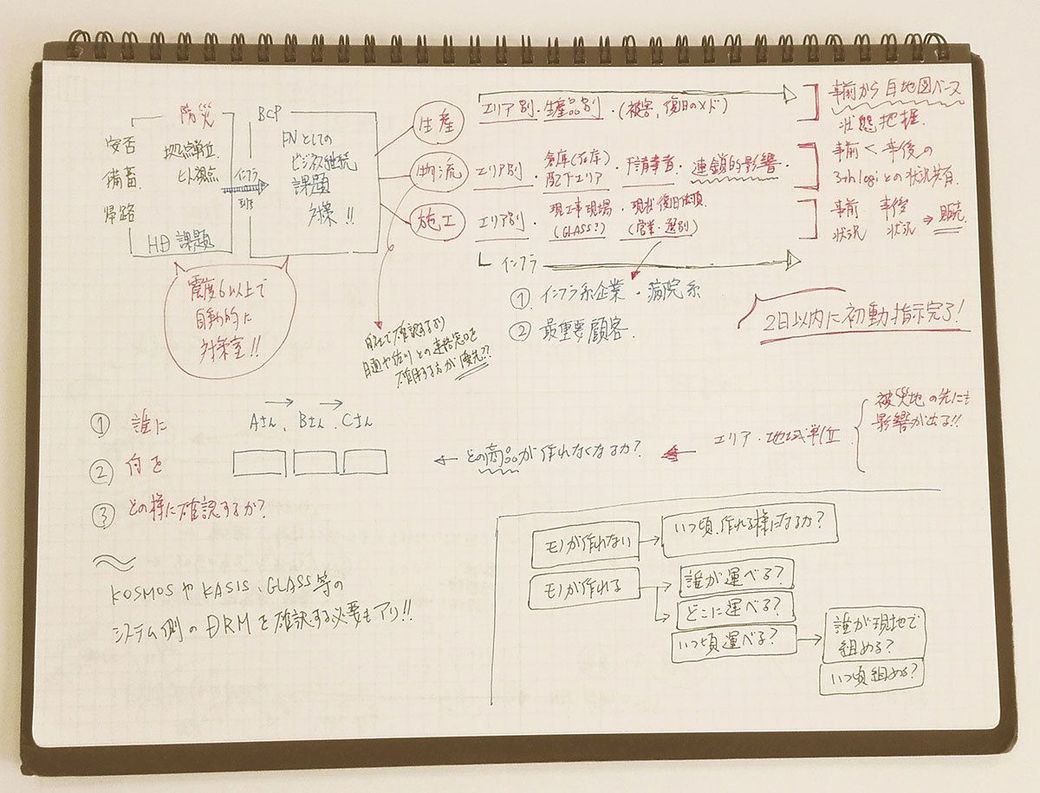 防災
安否
備蓄
帰路
拠点単位
ヒト視点
HD 課題
インフラ
BCP
FNとしての
ビジネス継続
課題
対策!!
震度6以上で
自動的に
対策室!!
生産
エリア別・生産品別・(被害、復旧のメド)
事前から白地図ベース
状態把握
物流
エリア別
倉庫(在庫)
配下エリア
下請業者・連鎖的影響
事前<事後の
3rd logiとの状況共有
施工
エリア別
現工事現場
(GLASS?)
現状復旧依頼
(営業・選別)
事前 事後
状況 状況 ⇒ 販売
インフラ
① インフラ系企業・病院系
② 最重要顧客
2日以内に初動指示完了!
自社で確認するより
との連絡窓口を
確保する方が優先??
① 誰に Aさん、Bさん、Cさん
② 何を
③ どの様に確認するか?
← どの商品が作れなくなるか? ← エリア・地域単位
被災地の先にも
影響が出る!!
KOSMOSやKASIS、GLASS等の
システム側のDRMを確認する必要もアリ!!
モノが作れない → いつ頃、作れる様になるか?
モノが作れる → 誰が運べる?
どこに運べる?
いつ頃運べる? → 誰が現地で
組める?
いつ頃組める?